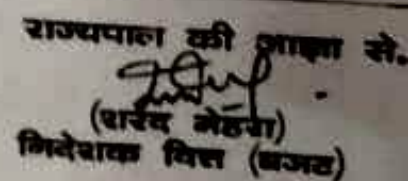 राज्यपाल की आज्ञा से.
(शरद मेहरा)
निदेशक वित्त (बजट)